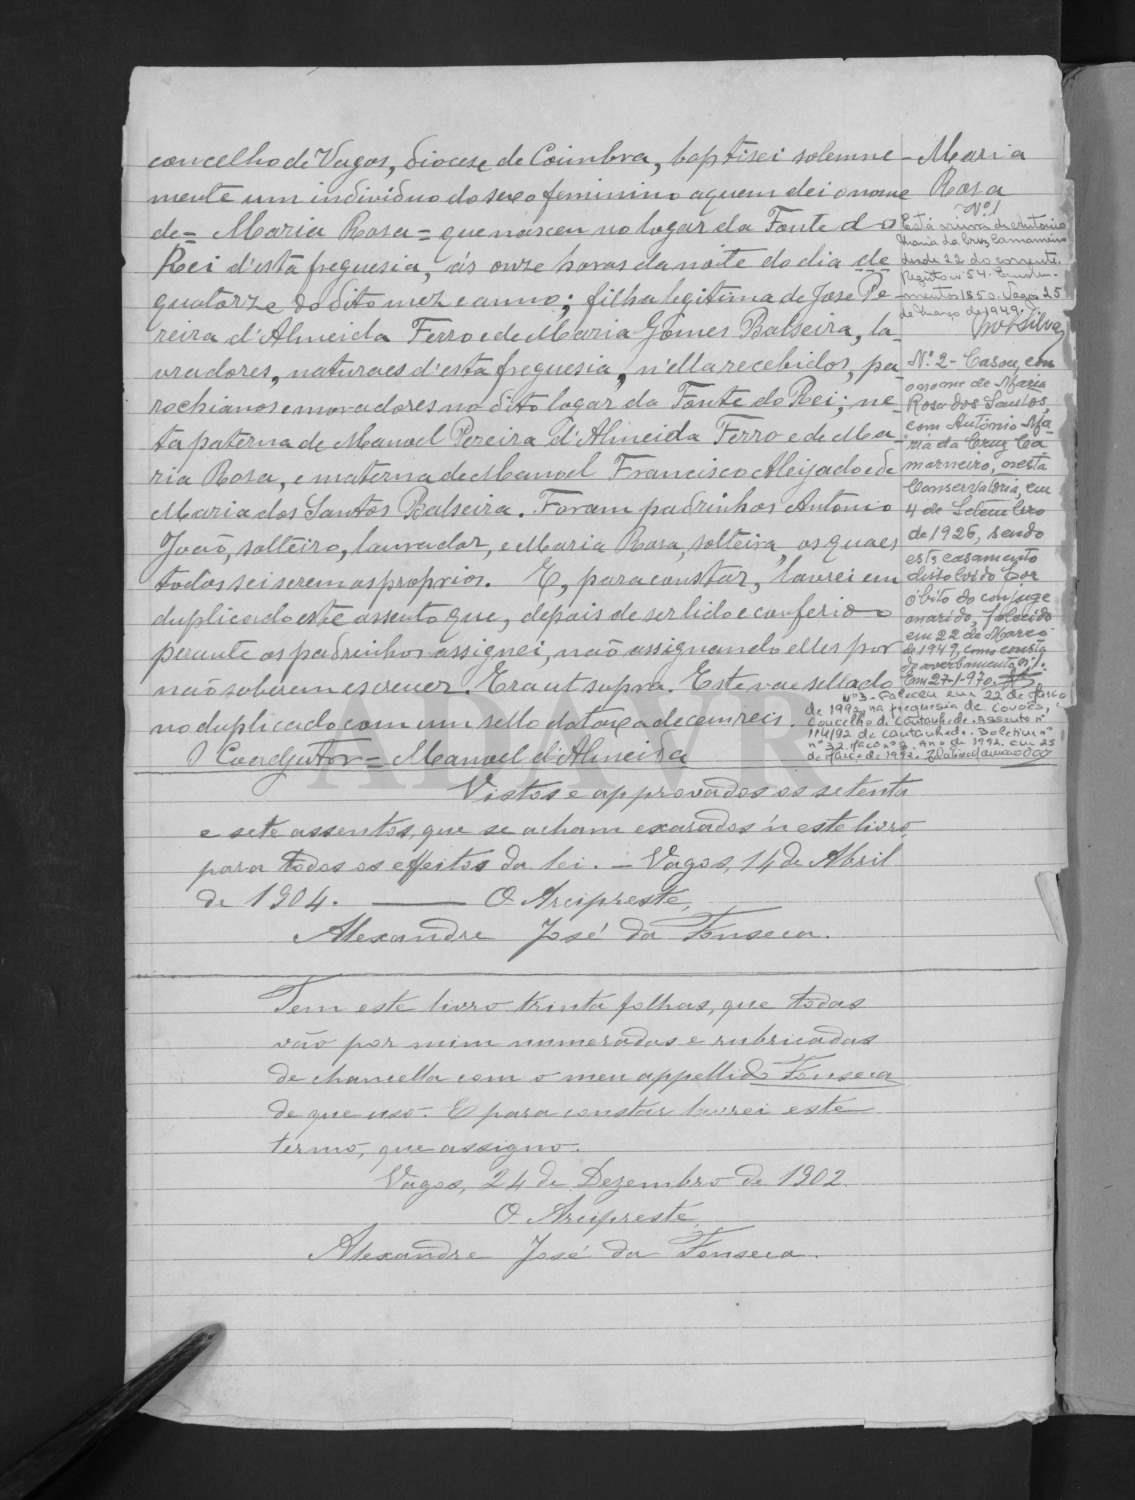 concelho de Vagos, diocese de Coimbra, baptisei solemne-
mente um individuo do sexo feminino a quem dei o nome
de = Maria Rosa = que nasceu no logar da Fonte do
Rei d'esta freguesia, ás onze horas da noite do dia de
quatorze do dito mez e anno; filha legitima de Jose Pe-
reira d'Almeida Ferro e de Maria Gomes Balseira, la-
vradores, naturaes d'esta freguesia, n'ella recebidos, pa-
rochianos e moradores no dito logar da Fonte do Rei; ne-
ta paterna de Manoel Pereira d'Almeida Ferro e de Ma-
ria Rosa, e materna de Manoel Francisco Aleijado e de
Maria dos Santos Balseira. Foram padrinhos Antonio
João, solteiro, lavrador, e Maria Rosa, solteira, os quaes
todos sei serem os proprios. E, para constar, lavrei em
duplicado este assento que, depois de ser lido e conferido
perante os padrinhos assignei, não assignando elles por
não saberem escrever. Era ut supra. Este vae sellado
no duplicado com um sello da taxa de cem reis.
O Coadjutor = Manoel d'Almeida
Maria
Rosa
Nº 1
Está viuva de Antonio
Maria da Cruz Camarneiro
desde 22 do corrente
Registo nº 54.
1850. Vagos 25
de Março de 1949.
Silva
Nº 2 - Casou, com
o nome de Maria
Rosa dos Santos,
com António Ma-
ria da Cruz Ca-
marneiro, nesta
Conservatória, em
4 de Setembro
de 1926, sendo
este casamento
dissolvido por
óbito do conjuge
marido, falecido
em 22 de Março
de 1949, como consta
do averbamento nº 1.
Em 27-1-970.
Nº 3 - Faleceu em 22 de Março
de 1992, na freguesia de Covões,
Concelho de Cantanhede. Assento nº
114/92 de Cantanhede. Boletim nº
nº 32 Maço nº 2 Ano de 1992. Em 25
de Março de 1992.
Vistos e approvados os setenta
e sete assentos, que se acham exarados n'este livro,
para todos os effeitos da lei. - Vagos, 14 de Abril
de 1904. — O Arcipreste,
Alexandre José da Fonseca.
Tem este livro trinta folhas, que todas
vão por mim numeradas e rubricadas
de chancella com o meu appellido Fonseca
de que uso. E para constar lavrei este
termo, que assigno.
Vagos, 24 de Dezembro de 1902.
O Arcipreste,
Alexandre José da Fonseca.
ADAVR